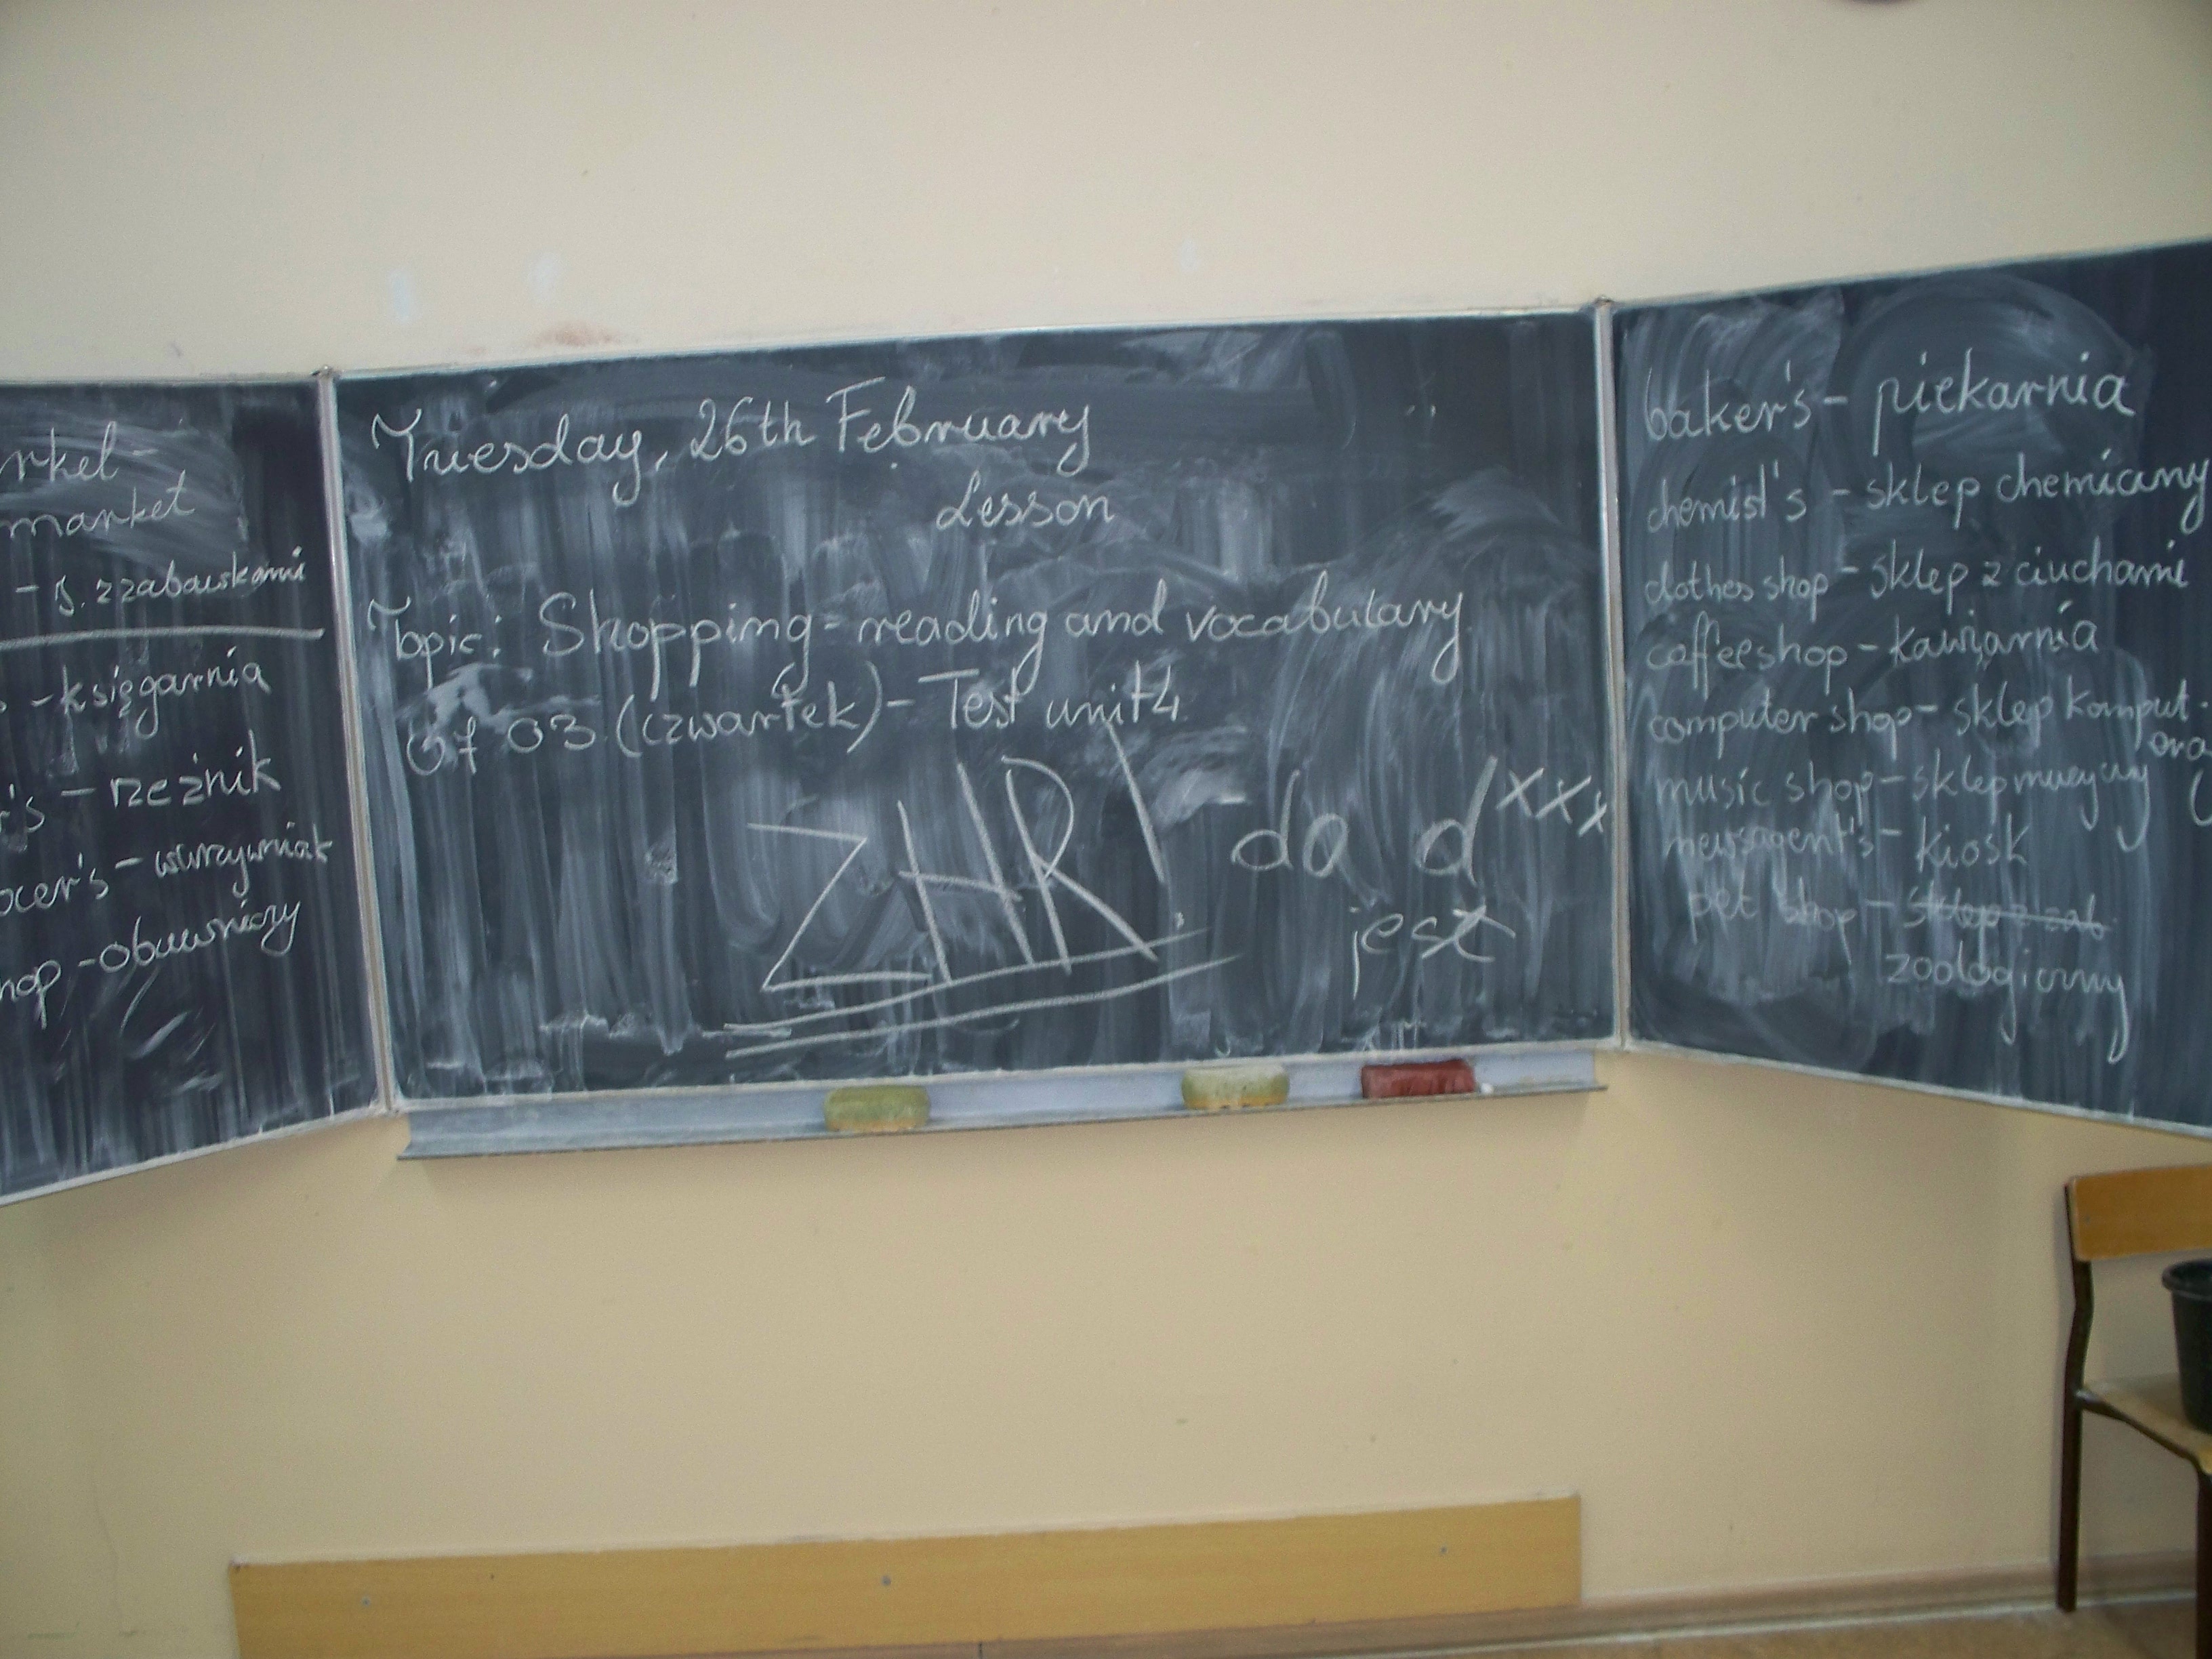 rket-
market
- s. z zabawkami
- księgarnia
r's - rzeźnik
ocer's - warzywniak
hop - obuwniczy
Tuesday, 26th February
Lesson
Topic: Shopping - reading and vocabulary.
07 03 (czwartek) - Test unit 4
ZHR! do dxxx
jest
baker's - piekarnia
chemist's - sklep chemiczny
clothes shop - sklep z ciuchami
coffee shop - kawiarnia
computer shop - sklep komput.
music shop - sklep muzyczny
newsagent's - kiosk
pet shop - sklep z zab
zoologiczny